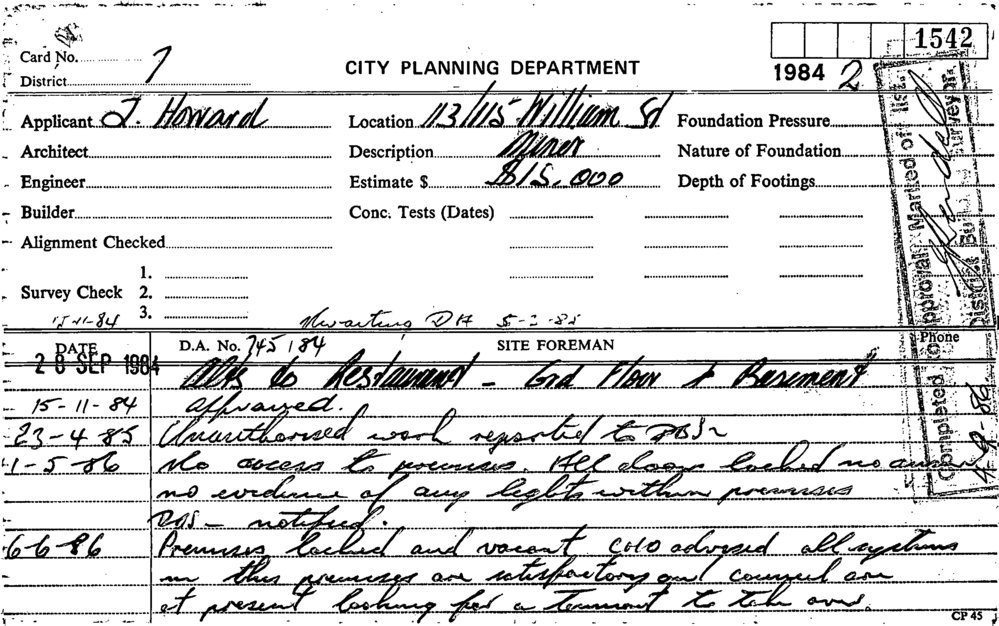 1542
Card No.
District 7
CITY PLANNING DEPARTMENT
1984 2
Applicant J. Howard
Location 113/115 William St
Foundation Pressure
Architect
Description Minor
Nature of Foundation
Engineer
Estimate $ $15,000
Depth of Footings
Builder
Conc. Tests (Dates)
Alignment Checked
Survey Check
1.
2.
3.
15-11-84
Awaiting DA 5-2-85
Completed on approval Marked off list.
District Surveyor.
1-9-86
DATE
D.A. No. 745/84
SITE FOREMAN
Phone
28 SEP 1984
Alts to Restaurant - Grd Floor & Basement
15-11-84 approved.
23-4-85 Unauthorised work reported to DBS
1-5-86 No access to premises. All doors locked no
no evidence of any lights within premises
notified.
6-6-86 Premises locked and vacant advised all systems
in this premises are satisfactory and council are
at present looking for a tennant to take over.
CP 45